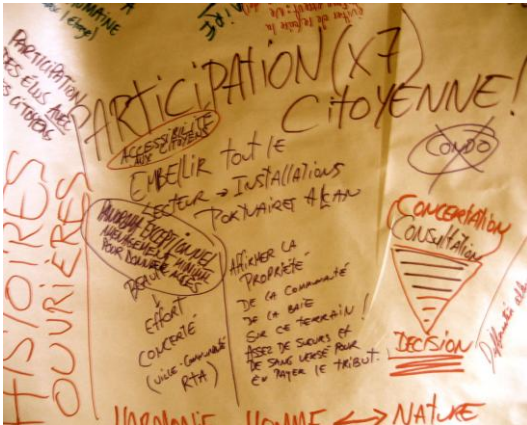 PARTICIPATION (X7)
CITOYENNE!
PARTICIPATION
DES ÉLUS AVEC
ES CITOYENS
ACCESSIBILITÉ
AUX CITOYENS
EMBELLIR tout LE
SECTEUR → INSTALLATIONS
PORTUAIRES ALCAN
PANORAMA EXCEPTIONNEL
MÉNAGEMENT MINIMUM
POUR DONNER ACCÈS
EFFORT
CONCERTÉ
(VILLE-COMMUNAUTÉ
RTA)
AFFIRMER LA
PROPRIÉTÉ
DE LA COMMUNAUTÉ
DE LA BAIE
SUR CE TERRAIN!
ASSEZ DE SUEURS ET
DE SANG VERSÉ POUR
EN PAYER LE TRIBUT.
CONDO
CONCERTATION
CONSULTATION
DECISION
HISTOIRES
OUVRIÈRES
HARMONIE HOMME ↔ NATURE